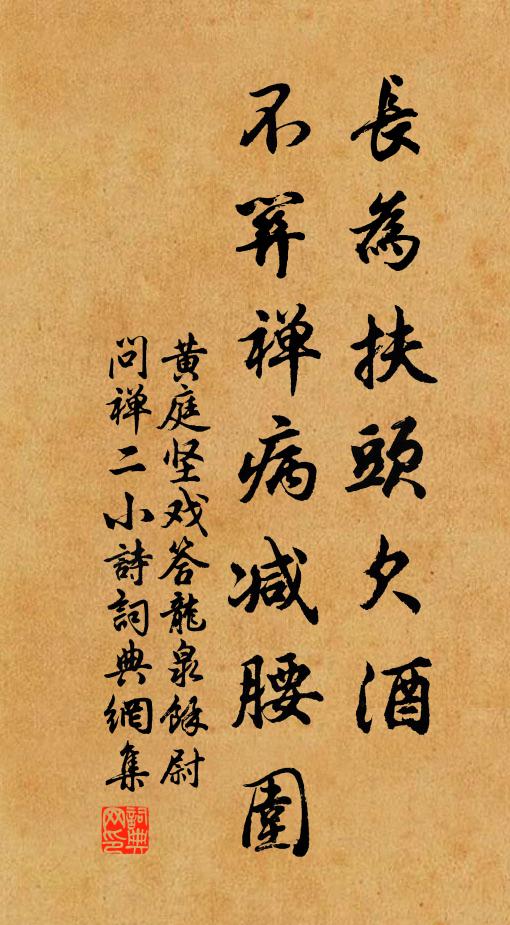 長為扶頭欠酒
不筭禅病减腰圍
黄庭坚戏答龍泉餘尉
問禅二小詩詞典網集
詞典网印